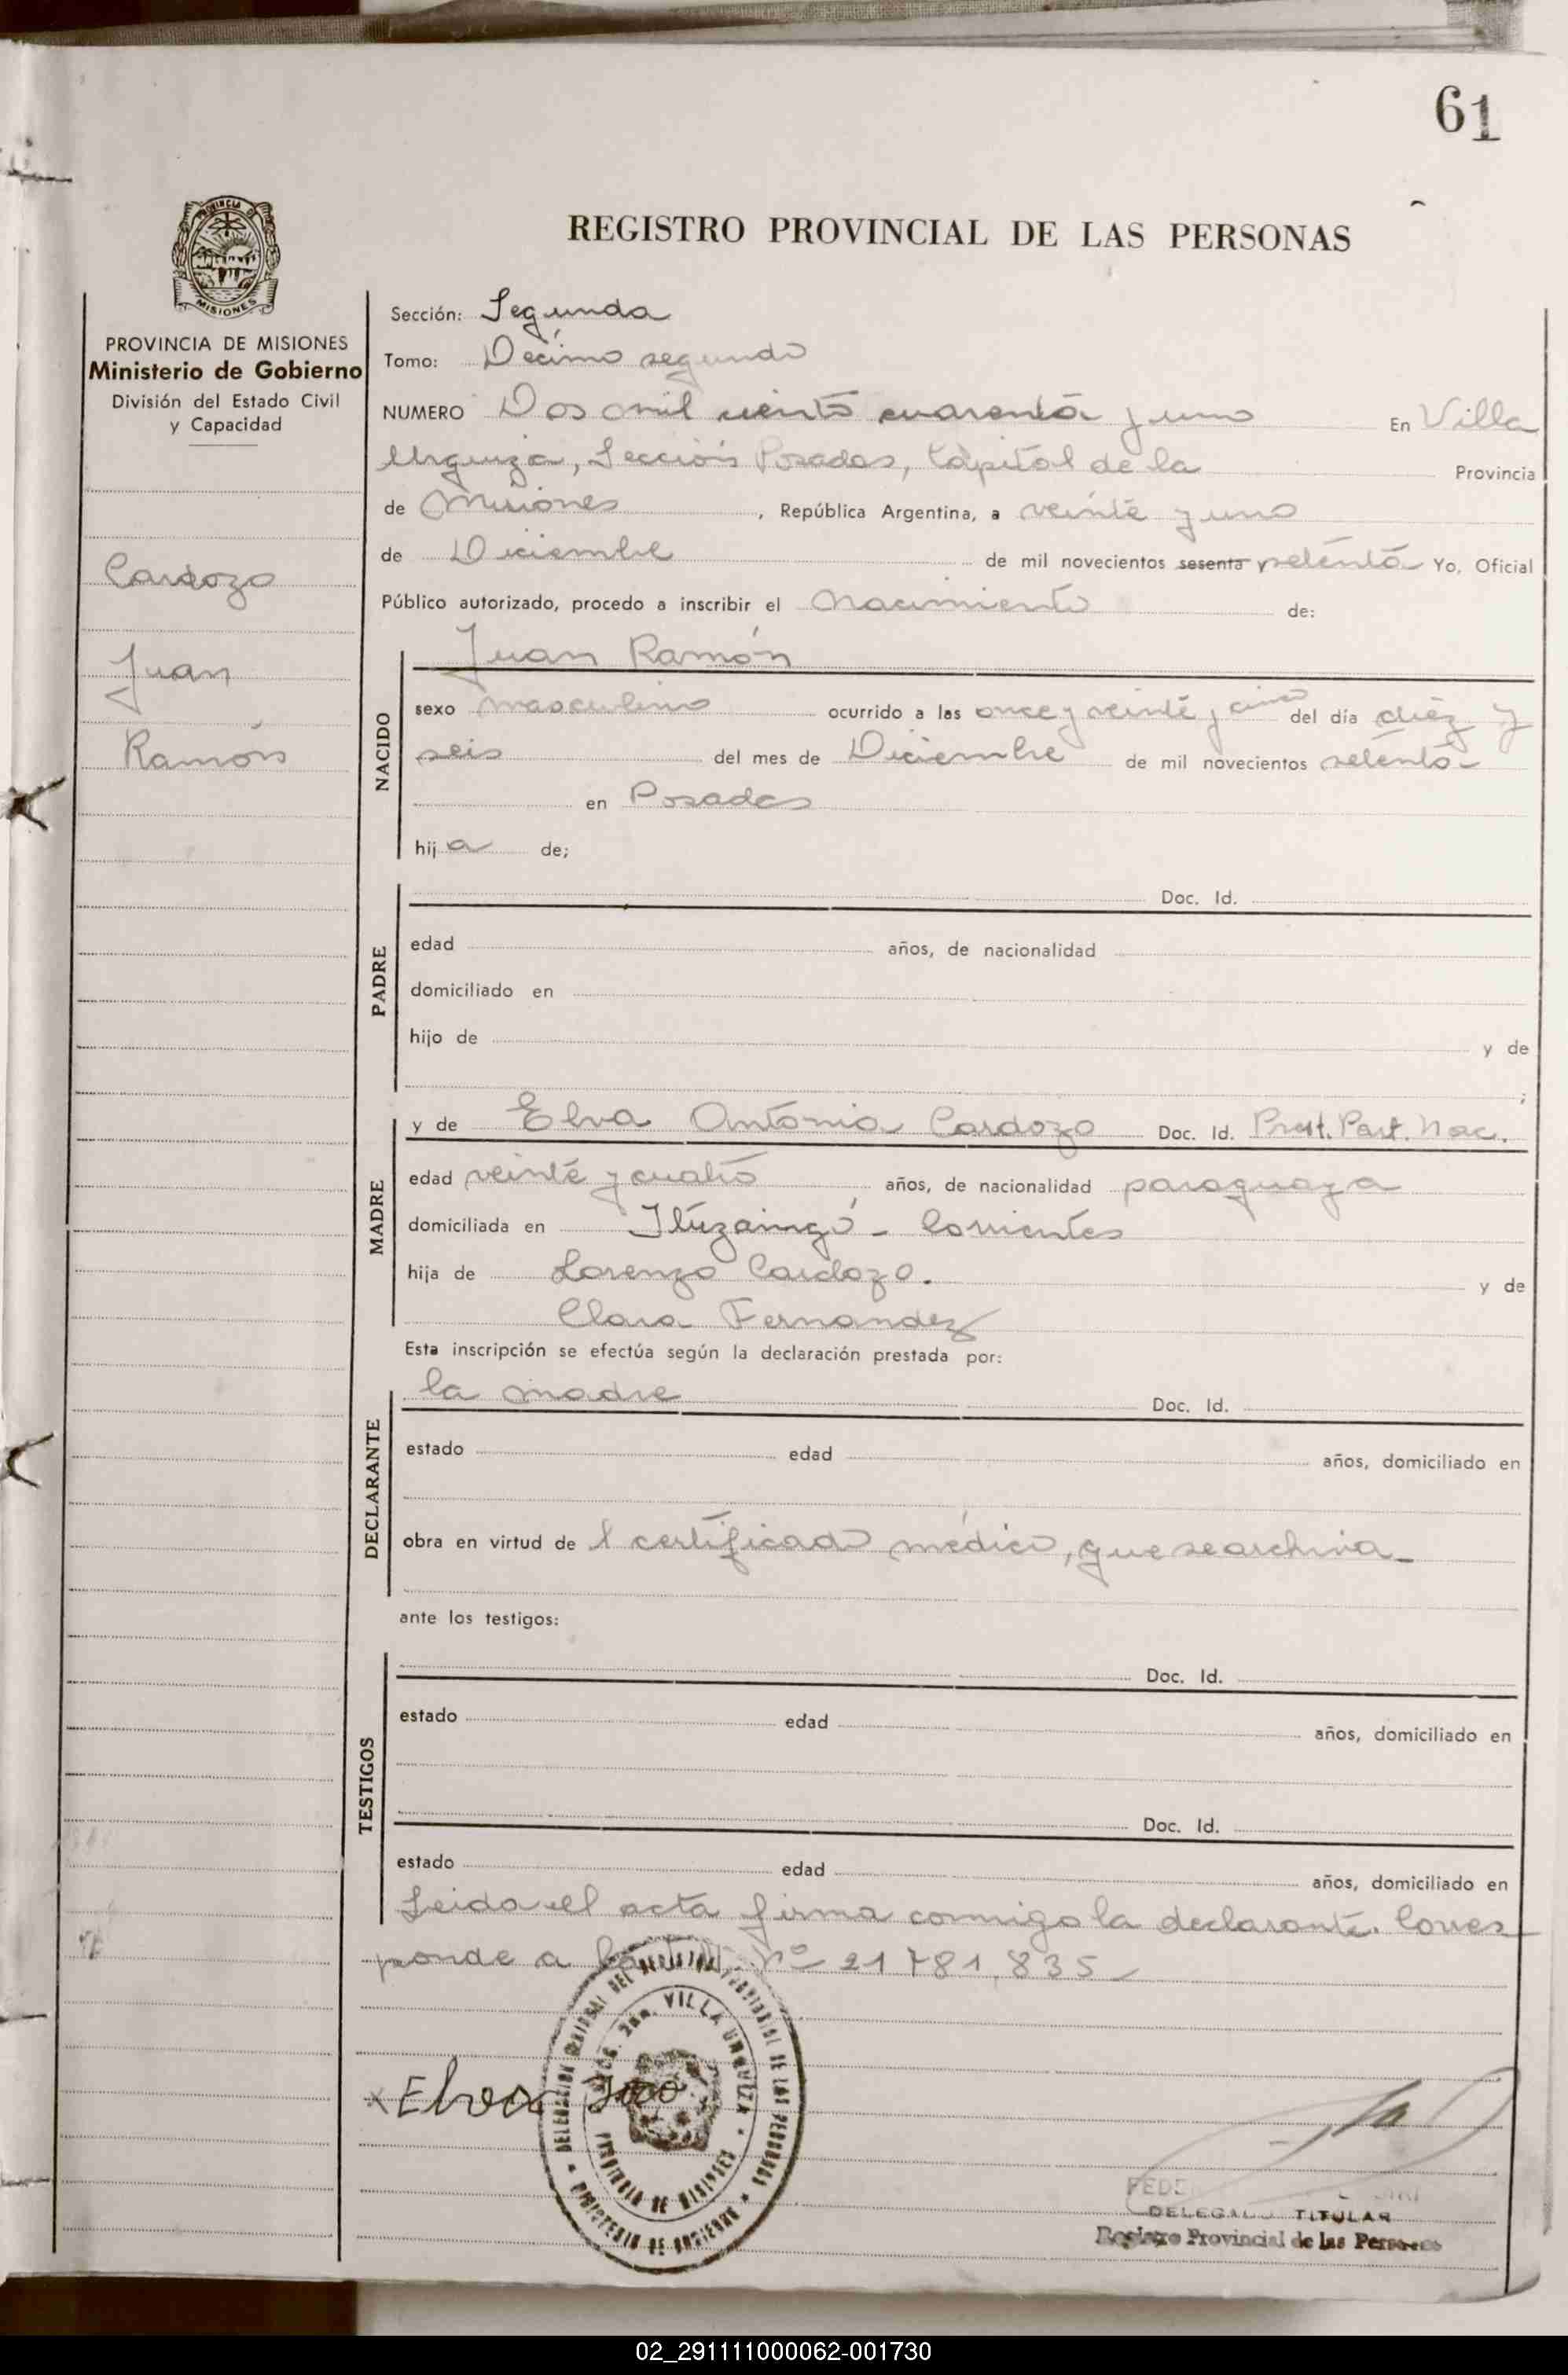 61
REGISTRO PROVINCIAL DE LAS PERSONAS
PROVINCIA DE MISIONES
PROVINCIA DE MISIONES
Ministerio de Gobierno
División del Estado Civil
y Capacidad
Cardozo
Juan
Ramón
Sección: Segunda
Tomo: Décimo segundo
NUMERO Dos mil ciento cuarenta y uno En Villa
Urquiza, Sección Posadas, Capital de la Provincia
de Misiones, República Argentina, a veinte y uno
de Diciembre de mil novecientos sesenta y setenta Yo, Oficial
Público autorizado, procedo a inscribir el nacimiento de:
NACIDO
Juan Ramón
sexo masculino ocurrido a las once y veinte y cinco del día diez y
seis del mes de Diciembre de mil novecientos setenta-
en Posadas
hija de;
PADRE
Doc. Id.
edad años, de nacionalidad
domiciliado en
hijo de y de
;
MADRE
y de Elva Antonia Cardozo Doc. Id. Prest. Part. Nac.
edad veinte y cuatro años, de nacionalidad paraguaya
domiciliada en Ituzaingó - Corrientes
hija de Lorenzo Cardozo. y de
Clara Fernandez
Esta inscripción se efectúa según la declaración prestada por:
DECLARANTE
la madre Doc. Id.
estado edad años, domiciliado en
obra en virtud de l certificado médico, que se archiva-
ante los testigos:
TESTIGOS
Doc. Id.
estado edad años, domiciliado en
Doc. Id.
estado edad años, domiciliado en
Leida el acta firma conmigo la declarante. Corres
ponde a Nº 21 781,835-
VILLA URQUIZA
PROVINCIA DE MISIONES
MINISTERIO DE GOBIERNO
x Elva
TITULAR
Registro Provincial de las Personas
02_291111000062-001730